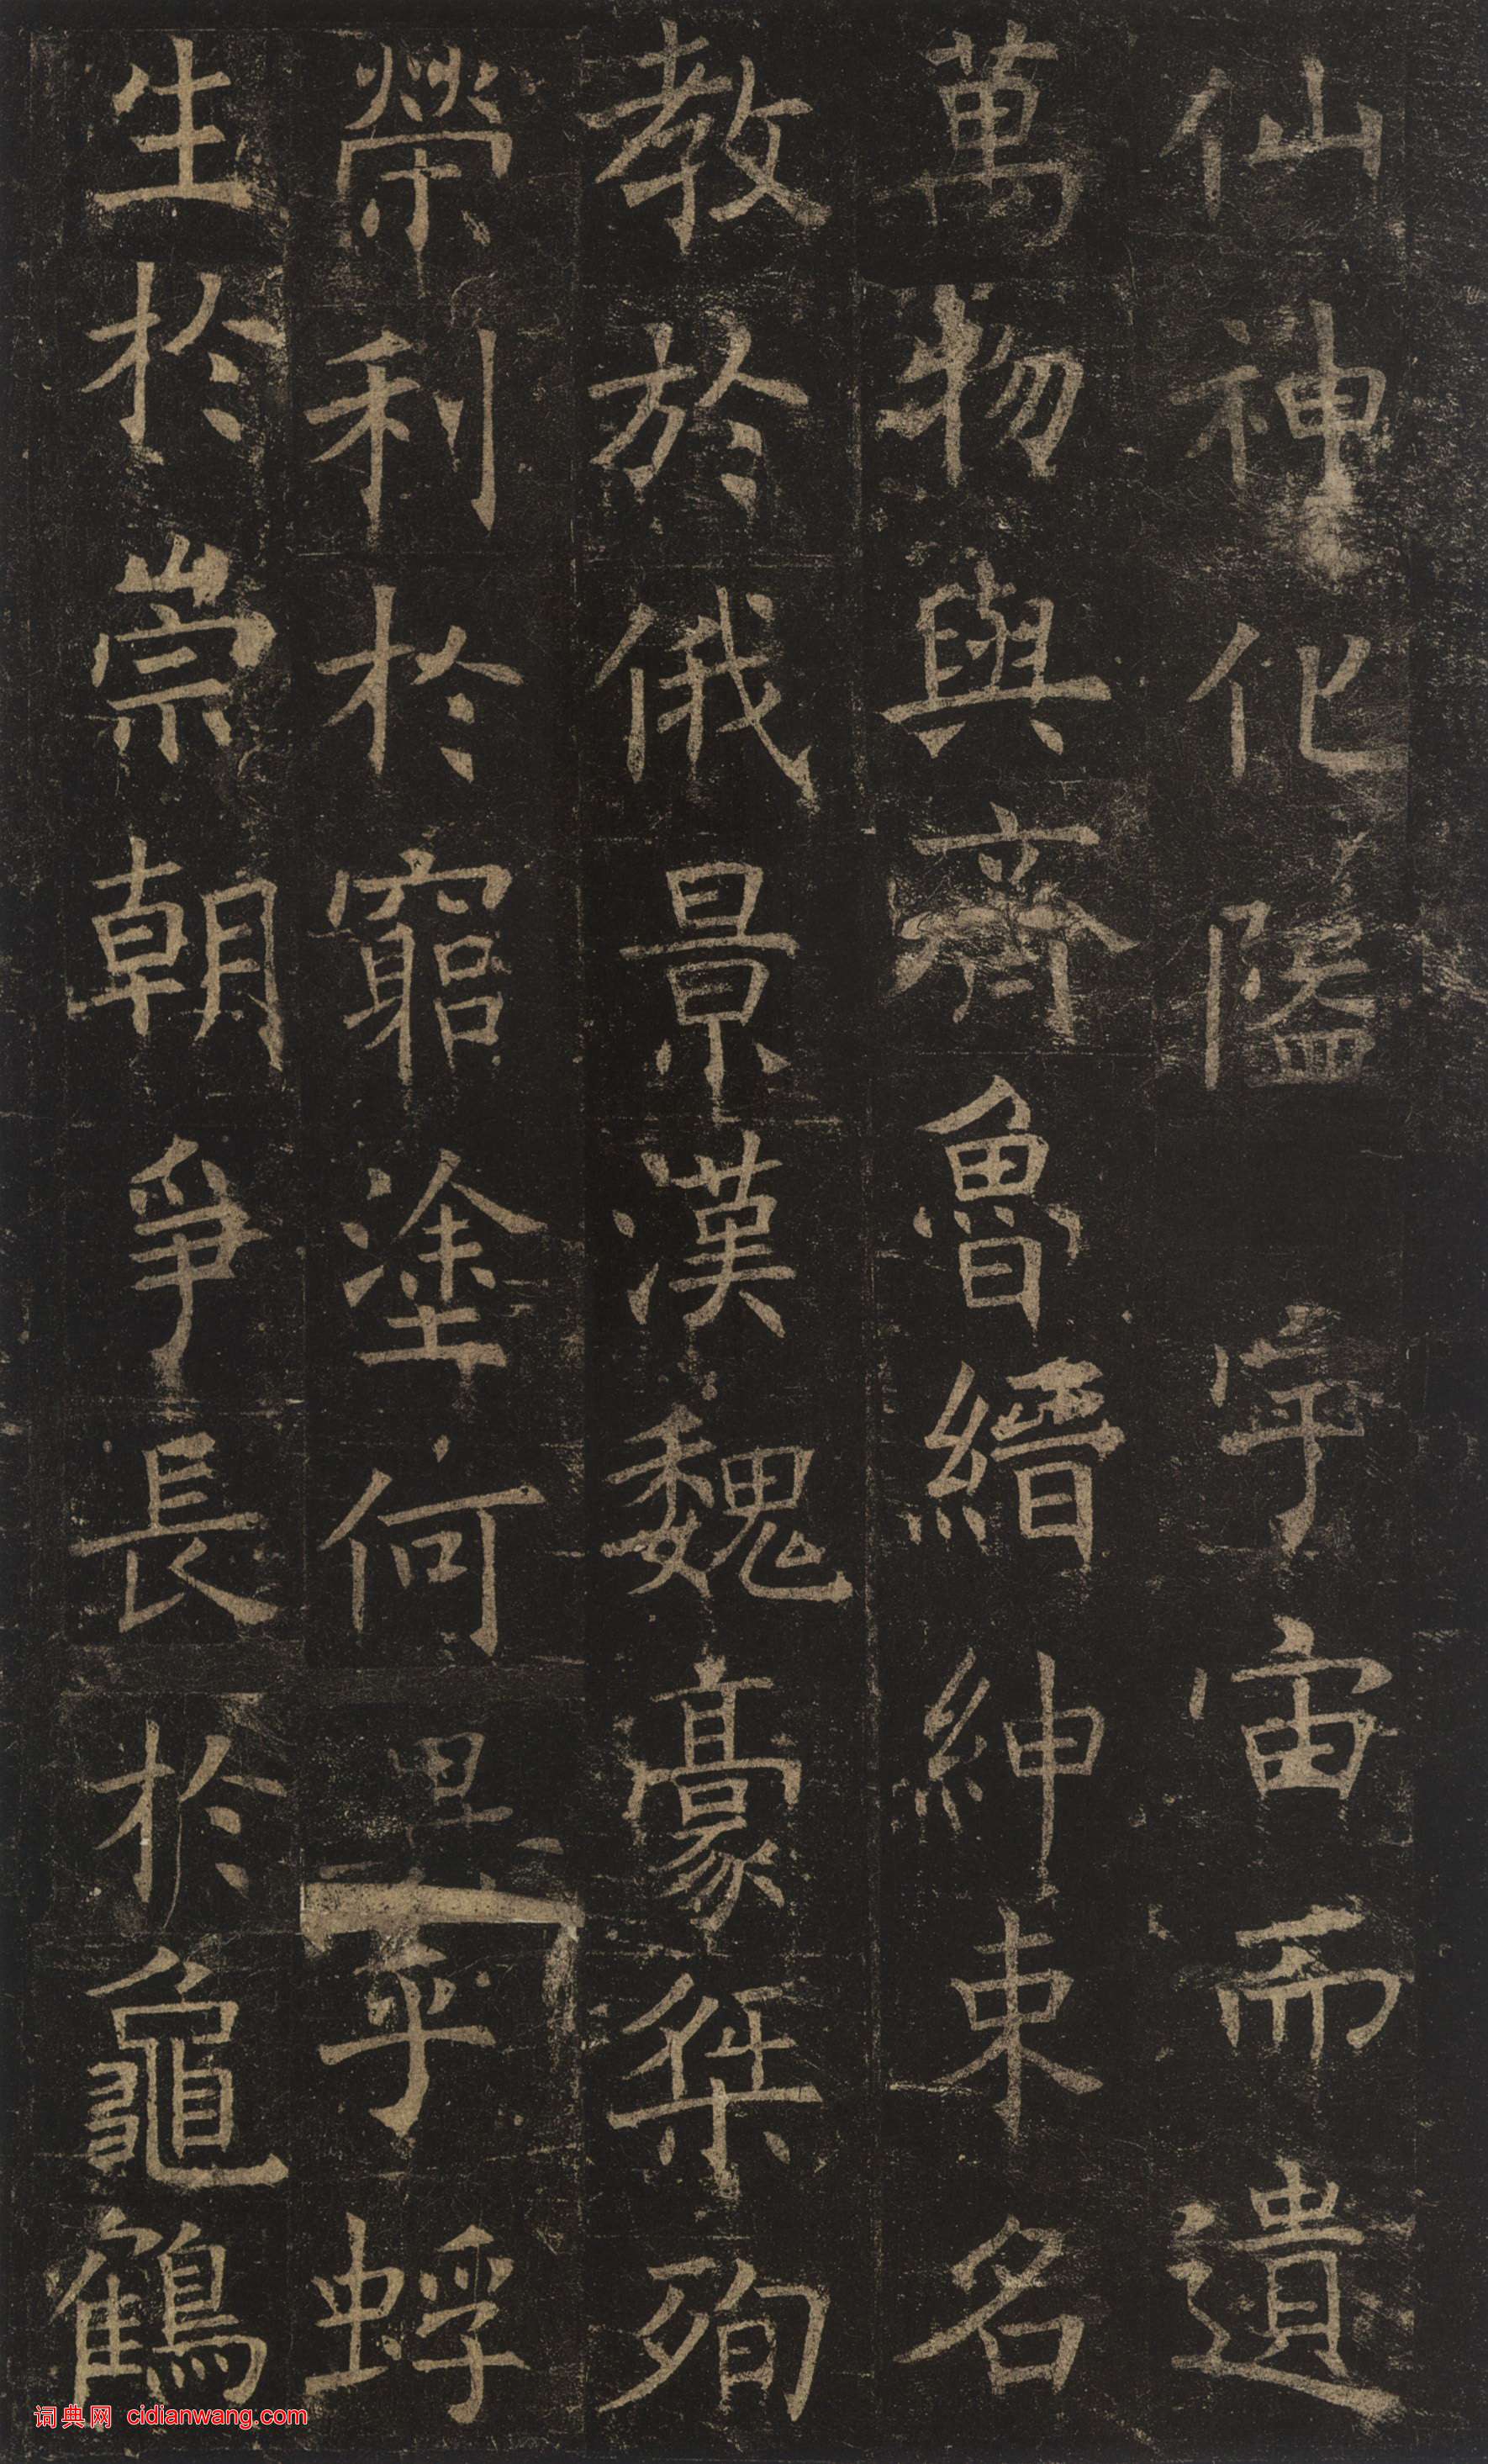 仙神化隘宇宙而遺
萬物與齊魯縉紳束名
教於俄景漢魏豪桀殉
榮利於窮塗何異乎蜉
生於崇朝爭長於龜鶴
词典网 cidianwang.com